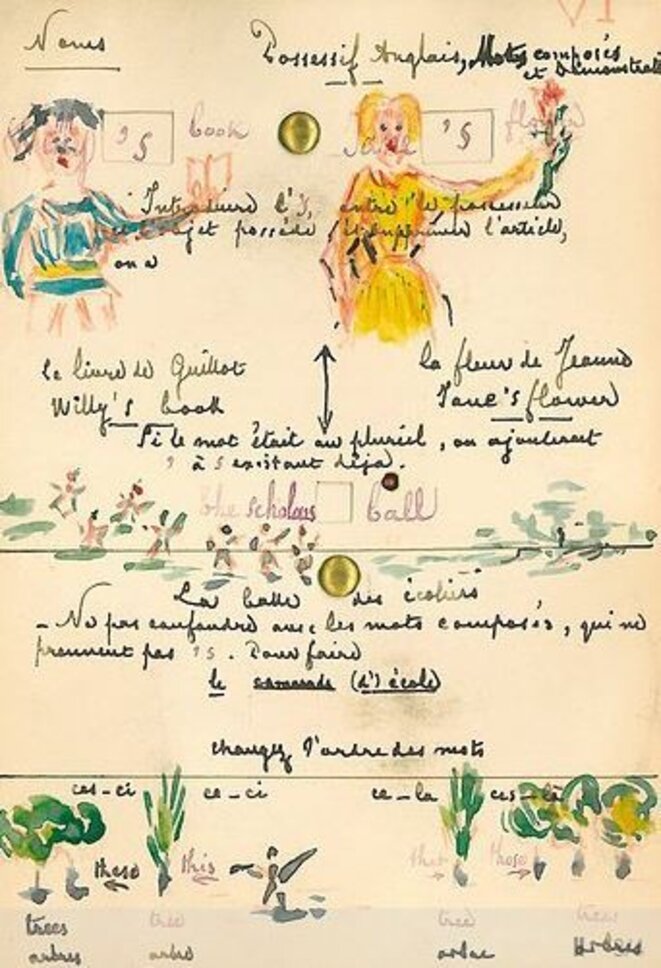 VI
Noms
Possessif Anglais, Mots composés
et Démonstrati
's book
's
Introduire l's, entre le possesseur
et l'objet possédé et supprimer l'article,
on a
le livre de Guillot
Willy's book
la fleur de Jeanne
Jane's flower
Si le mot était au pluriel, on ajouterait
' à s existant déjà.
the scholars ball
La balle des écoliers
- Ne pas confondre avec les mots composés, qui ne
prennent pas 's. Pour faire
le camarade (d') école
changez l'ordre des mots
ces-ci ce-ci ce-la ces-là
these this that those
trees tree tree trees
arbres arbre arbre arbres